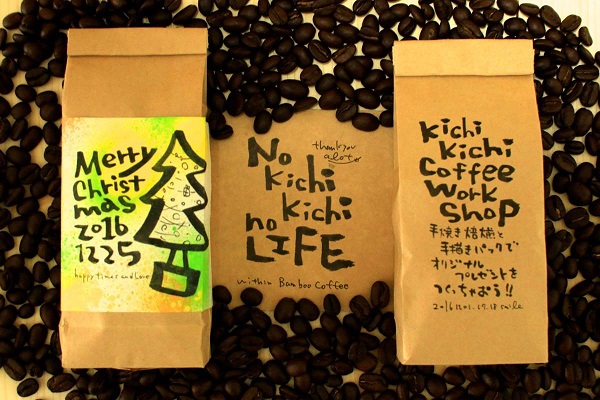 Merry
Christ
mas
2016
1225
happy times and Love
thank you
alot
No
Kichi
Kichi
no
LIFE
within Bamboo Coffee
Kichi
Kichi
Coffee
Work
Shop
手焼き焙煎と
手描きパックで
オリジナル
プレゼントを
つくっちゃおう!!